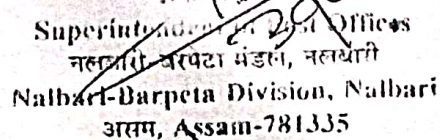 Superintendent of Post Offices
नलबारी-बरपेटा मंडल, नलबारी
Nalbari-Barpeta Division, Nalbari
असम, Assam-781335